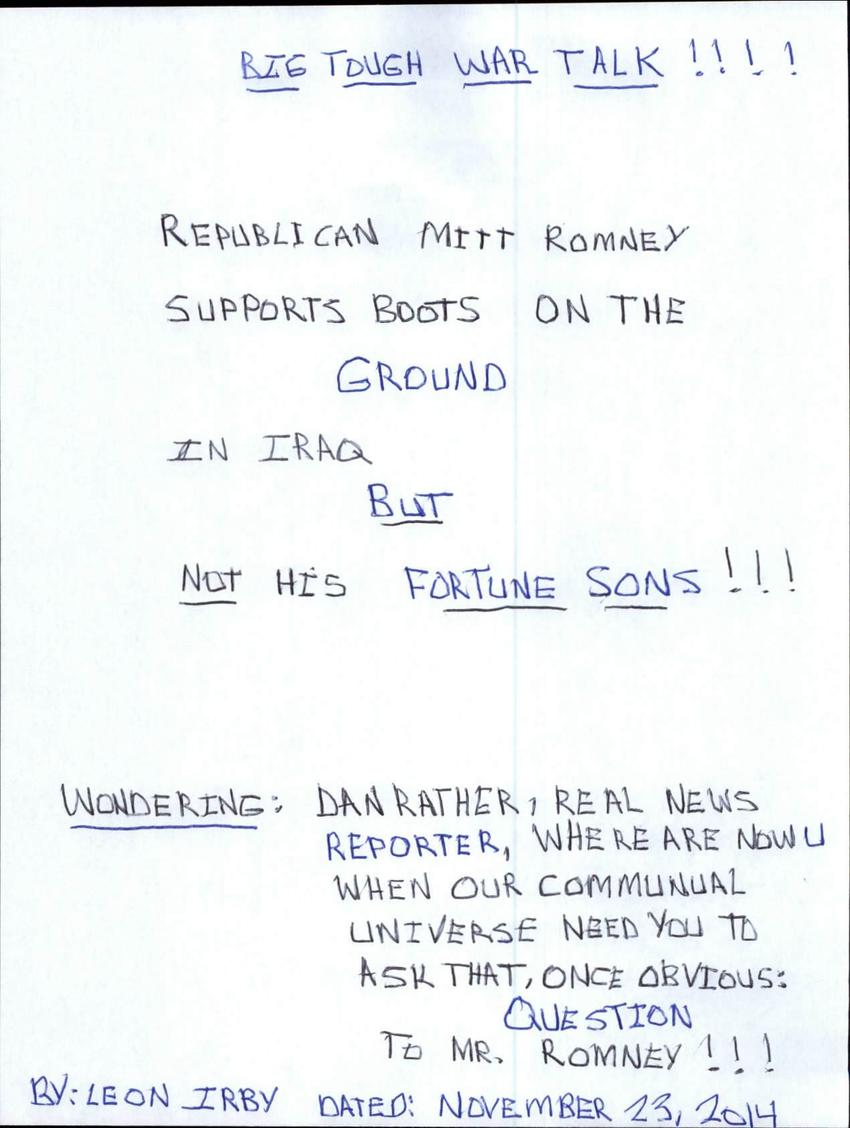 BIG TOUGH WAR TALK !!!!
REPUBLICAN MITT ROMNEY
SUPPORTS BOOTS ON THE
GROUND
IN IRAQ
BUT
NOT HIS FORTUNE SONS !!!
WONDERING: DAN RATHER, REAL NEWS
REPORTER, WHERE ARE NOW U
WHEN OUR COMMUNUAL
UNIVERSE NEED YOU TO
ASK THAT, ONCE OBVIOUS:
QUESTION
TO MR. ROMNEY !!!
BY: LEON IRBY DATED: NOVEMBER 23, 2014